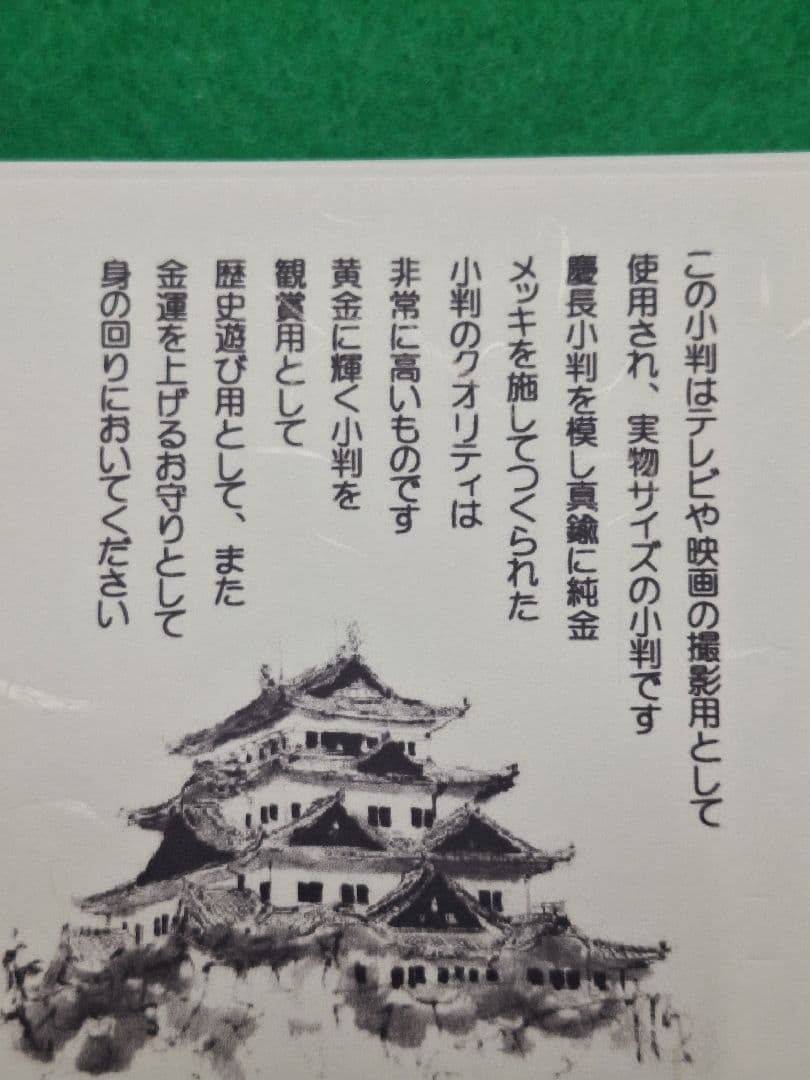 この小判はテレビや映画の撮影用として
使用され、実物サイズの小判です
慶長小判を模し真鍮に純金
メッキを施してつくられた
小判のクオリティは
非常に高いものです
黄金に輝く小判を
観賞用として
歴史遊び用として、また
金運を上げるお守りとして
身の回りにおいてください